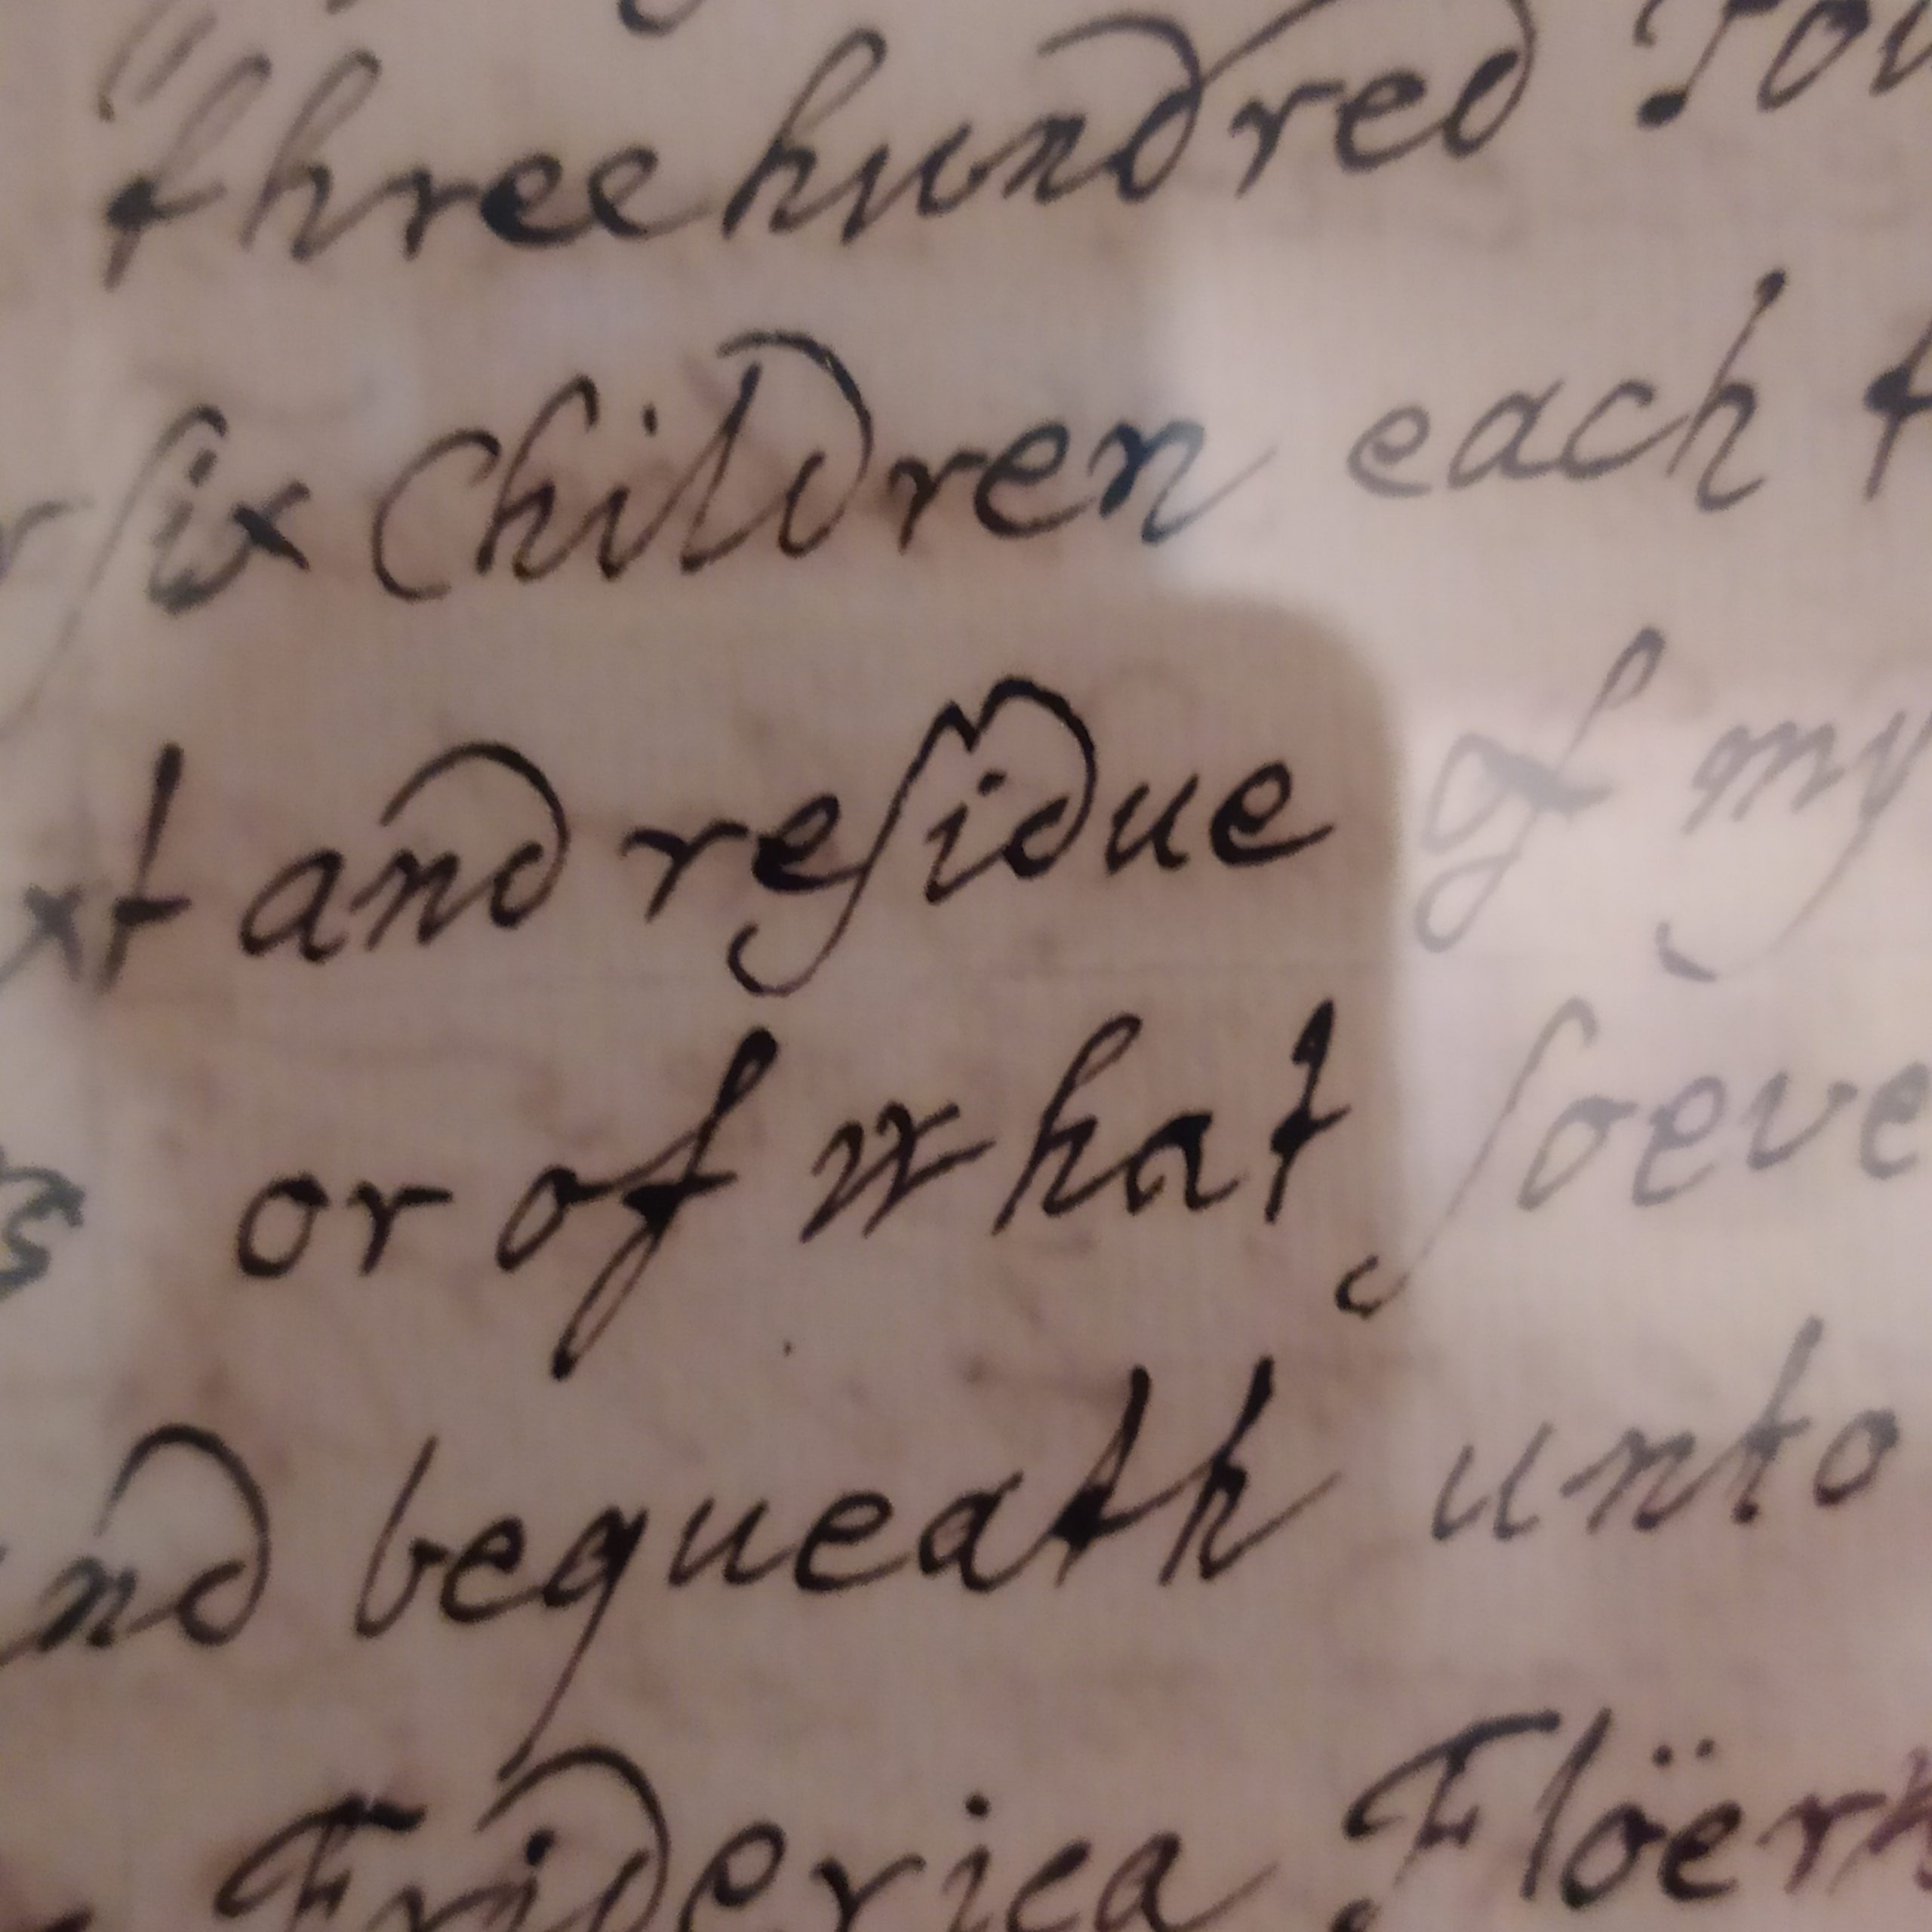 three hundred
ſix Children each
and reſidue of my
or of what ſoeve
bequeath unto
Friderica Flöerk